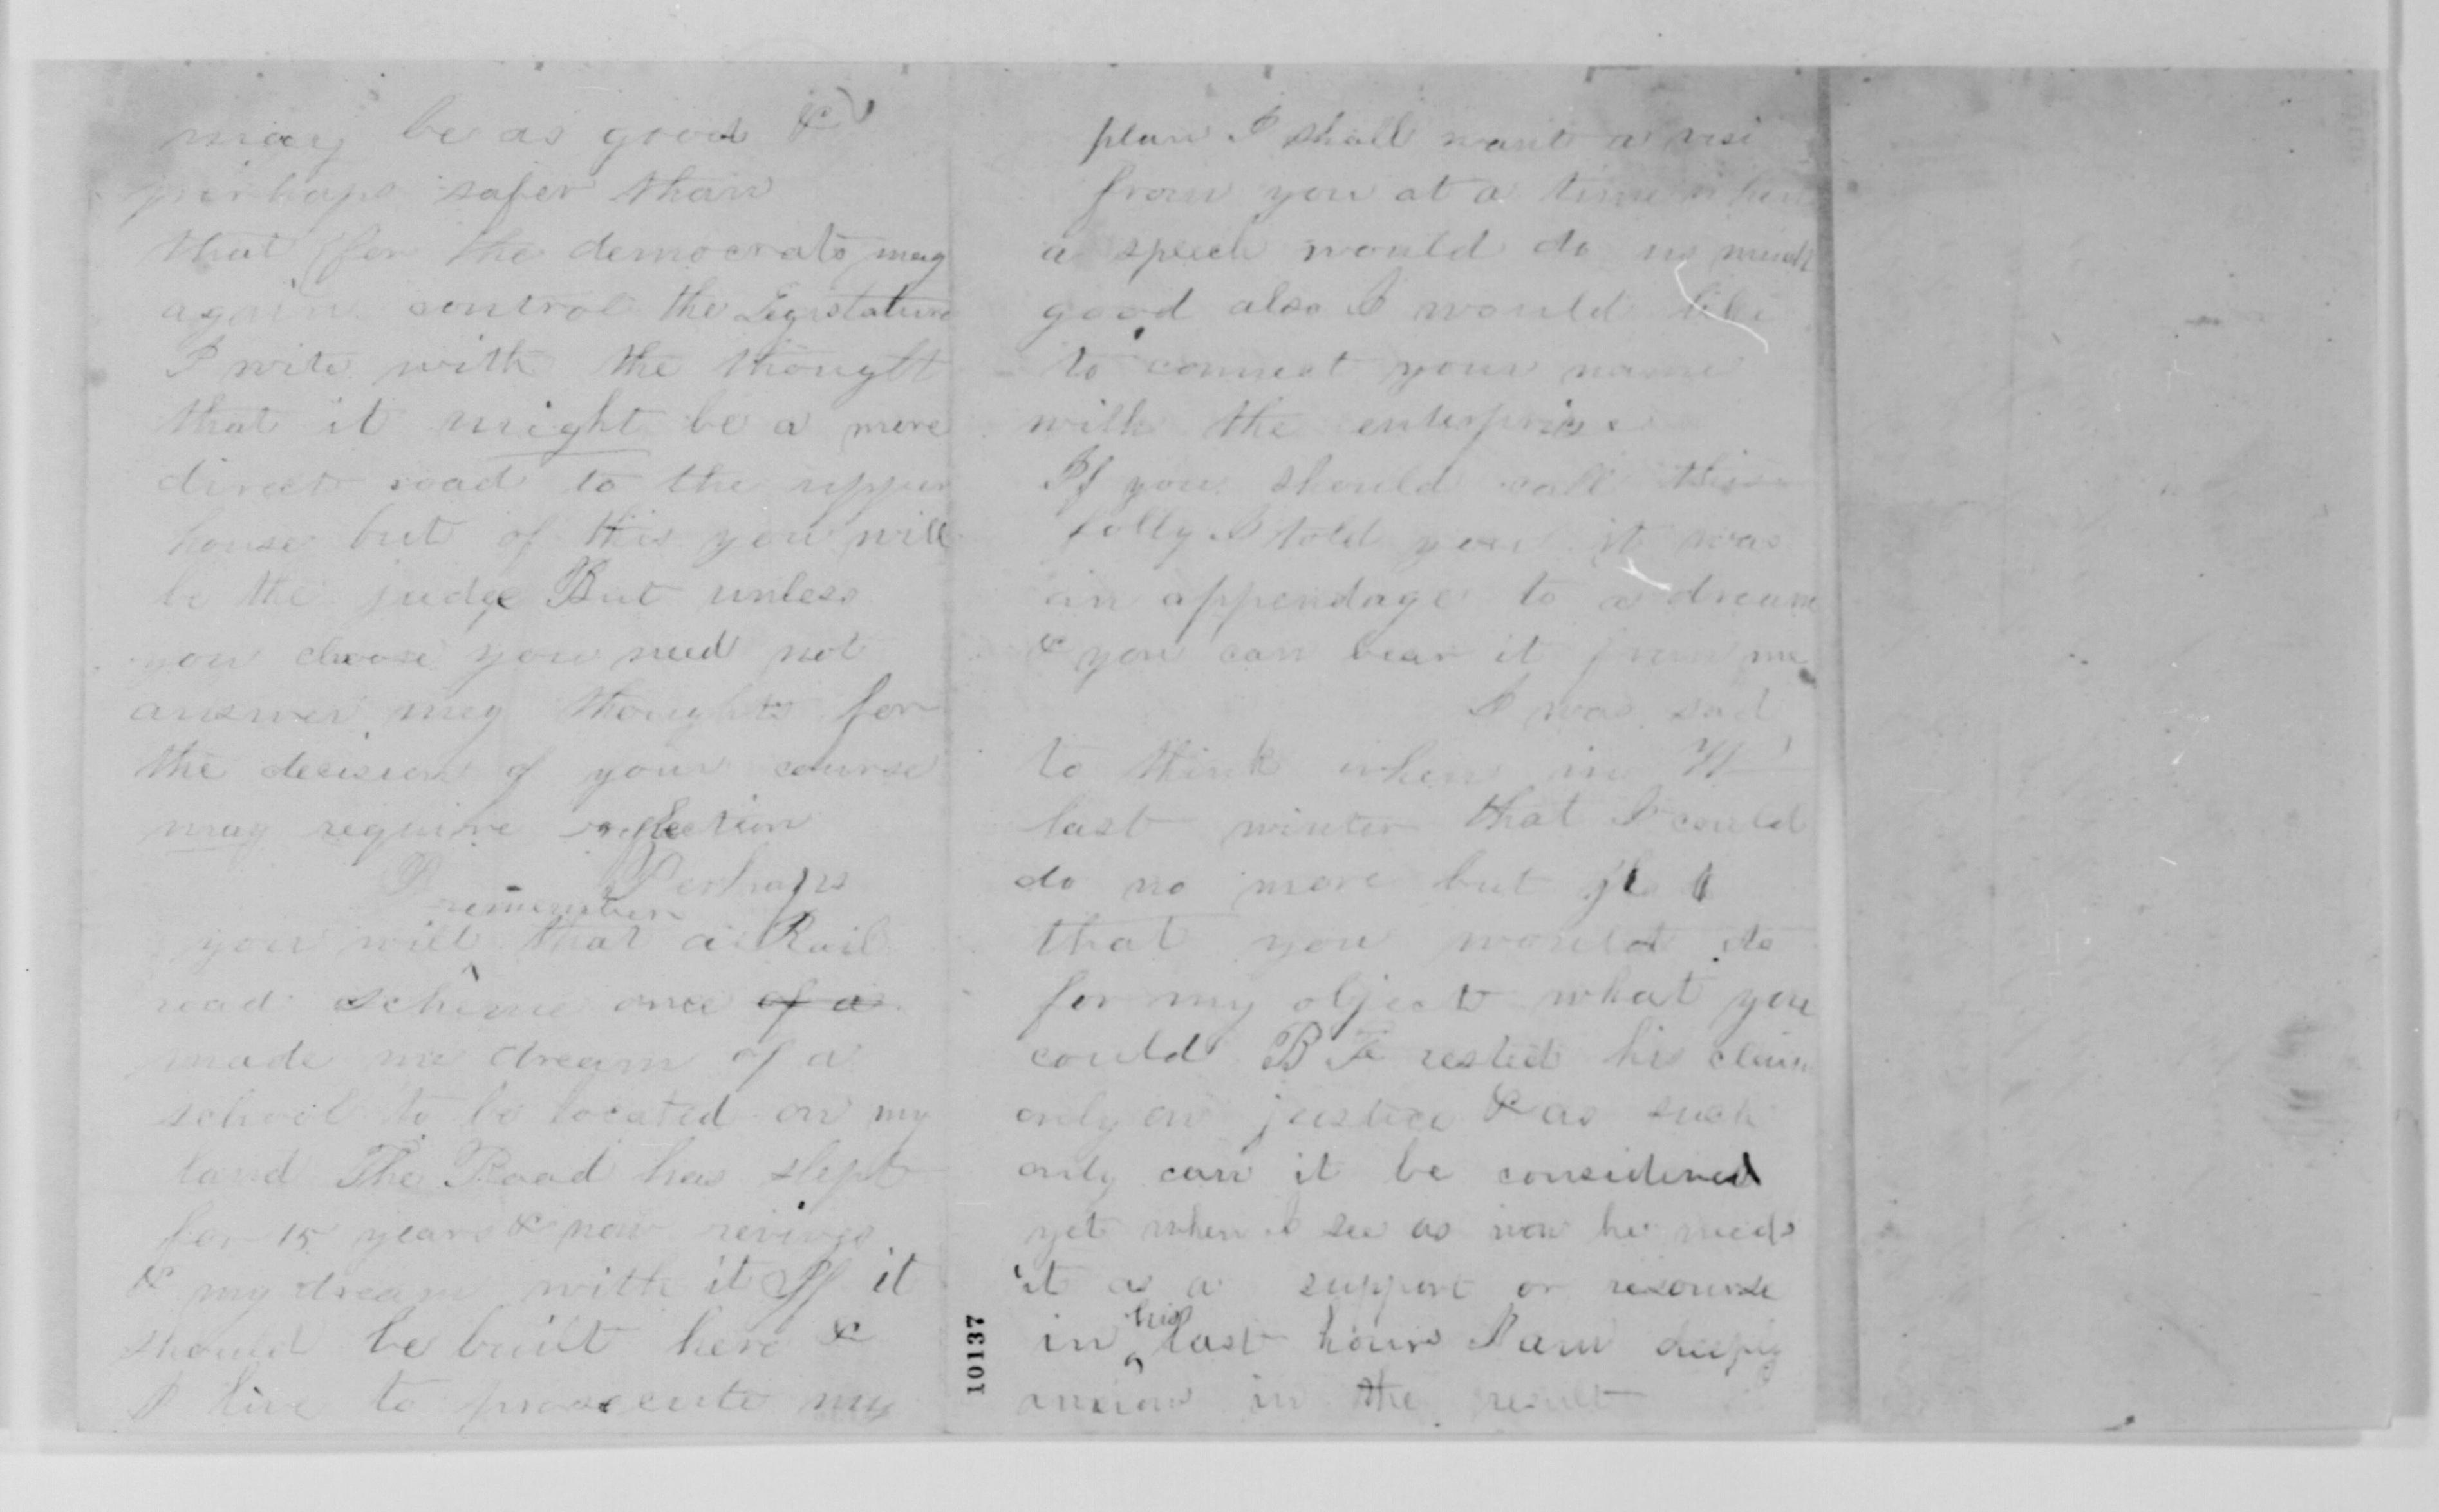 may be as good &
perhaps safer than
that (for the democrats may
again control the Legislature
I write with the thought
that it might be a more
direct road to the upper
house but of this you will
be the judge But unless
you choose you need not
answer my thoughts for
the decision of your course
may require reflection
Perhaps
remember
you will that a Rail
road scheme once of a
made me dream of a
school to be located on my
land The Road has slept
for 15 years & now revives
& my dream with it If it
should be built here &
I live to prosecute my
plan I shall want a
from you at a time when
a speech would do us much
good also I would like
to connect your name
with the enterprise
If you should call this
folly I told you it was
an appendage to a dream
& you can bear it from me
I was sad
to think when in W
last winter that I could
do no more but
that you would do
for my object what you
could B F rested his claim
only on justice & as such
only can it be considered
yet when I see as now he needs
it as a support or resourse
his
in last hours I am deeply
anxious in the result
10137